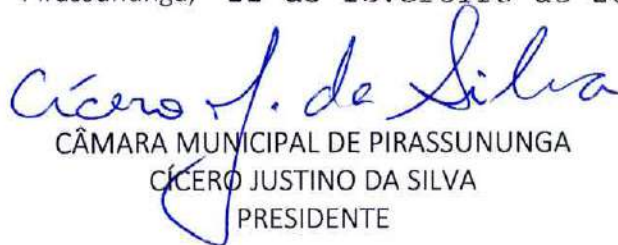 Pirassununga, 11 de fevereiro de
Cícero J. da Silva
CÂMARA MUNICIPAL DE PIRASSUNUNGA
CÍCERO JUSTINO DA SILVA
PRESIDENTE